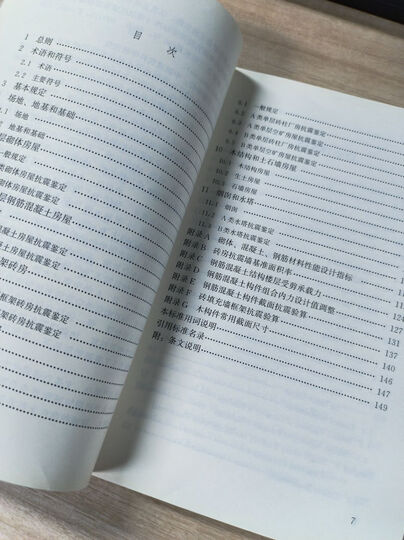 目 次
1 总则
2 术语和符号
2.1 术语
2.2 主要符号
3 基本规定
场地、地基和基础
场地
地基和基础
层砌体房屋
一般规定
类砌体房屋抗震鉴定
砌体房屋抗震鉴定
层钢筋混凝土房屋
凝土房屋抗震鉴定
土房屋抗震鉴定
架砖房
框架砖房抗震鉴定
架砖房抗震鉴定
一般规定
A类单层砖柱厂房抗震鉴定
A类单层空旷房屋抗震鉴定
B类单层砖柱厂房抗震鉴定
B类单层空旷房屋抗震鉴定
10 木结构和土石墙房屋
木结构房屋
生土房屋
石墙房屋
11 烟囱和水塔
11.1 烟囱
A类水塔抗震鉴定
B类水塔抗震鉴定
附录A 砌体、混凝土、钢筋材料性能设计指标
附录B 砖房抗震墙基准面积率
附录C 钢筋混凝土结构楼层受剪承载力
附录D 钢筋混凝土构件组合内力设计值调整
附录E 钢筋混凝土构件截面抗震验算 131
附录F 砖填充墙框架抗震验算 137
附录G 木构件常用截面尺寸 140
本标准用词说明 146
引用标准名录 147
附：条文说明 149
7